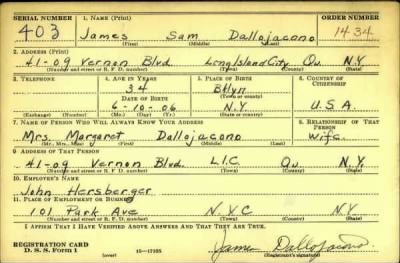 SERIAL NUMBER 1. NAME (Print) ORDER NUMBER
403 James Sam Dallojacono 1434
(First) (Middle) (Last)
2. ADDRESS (Print)
41-09 Vernon Blvd Long Island City Qu. N.Y.
(Number and street or R. F. D. number) (Town) (County) (State)
3. TELEPHONE 4. AGE IN YEARS 5. PLACE OF BIRTH 6. COUNTRY OF CITIZENSHIP
34 Bklyn
DATE OF BIRTH (Town or county)
6-10-06 N.Y. U.S.A.
(Exchange) (Number) (Mo.) (Day) (Yr.) (State or country)
7. NAME OF PERSON WHO WILL ALWAYS KNOW YOUR ADDRESS 8. RELATIONSHIP OF THAT PERSON
Mrs. Margaret Dallojacono Wife
(Mr., Mrs., Miss) (First) (Middle) (Last)
9. ADDRESS OF THAT PERSON
41-09 Vernon Blvd. L.I.C. Qu. N.Y.
(Number and street or R. F. D. number) (Town) (County) (State)
10. EMPLOYER'S NAME
John Hersberger
11. PLACE OF EMPLOYMENT OR BUSINESS
101 Park Ave N.Y.C N.Y.
(Number and street or R. F. D. number) (Town) (County) (State)
I AFFIRM THAT I HAVE VERIFIED ABOVE ANSWERS AND THAT THEY ARE TRUE.
REGISTRATION CARD
D. S. S. Form 1 (over) 16-17105 James Dallojacono
(Registrant's signature)